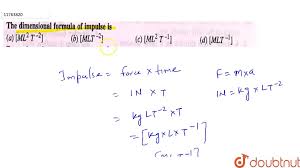 11763820
The dimensional formula of impulse is
(a) [ML² T⁻²] (b) [MLT⁻²] (c) [ML² T⁻¹] (d) [MLT⁻¹]
Impulse = force × time F = m×a
= 1N × T 1N = kg × LT⁻²
= kg LT⁻² × T
= [kg × L × T⁻¹]
doubtnut